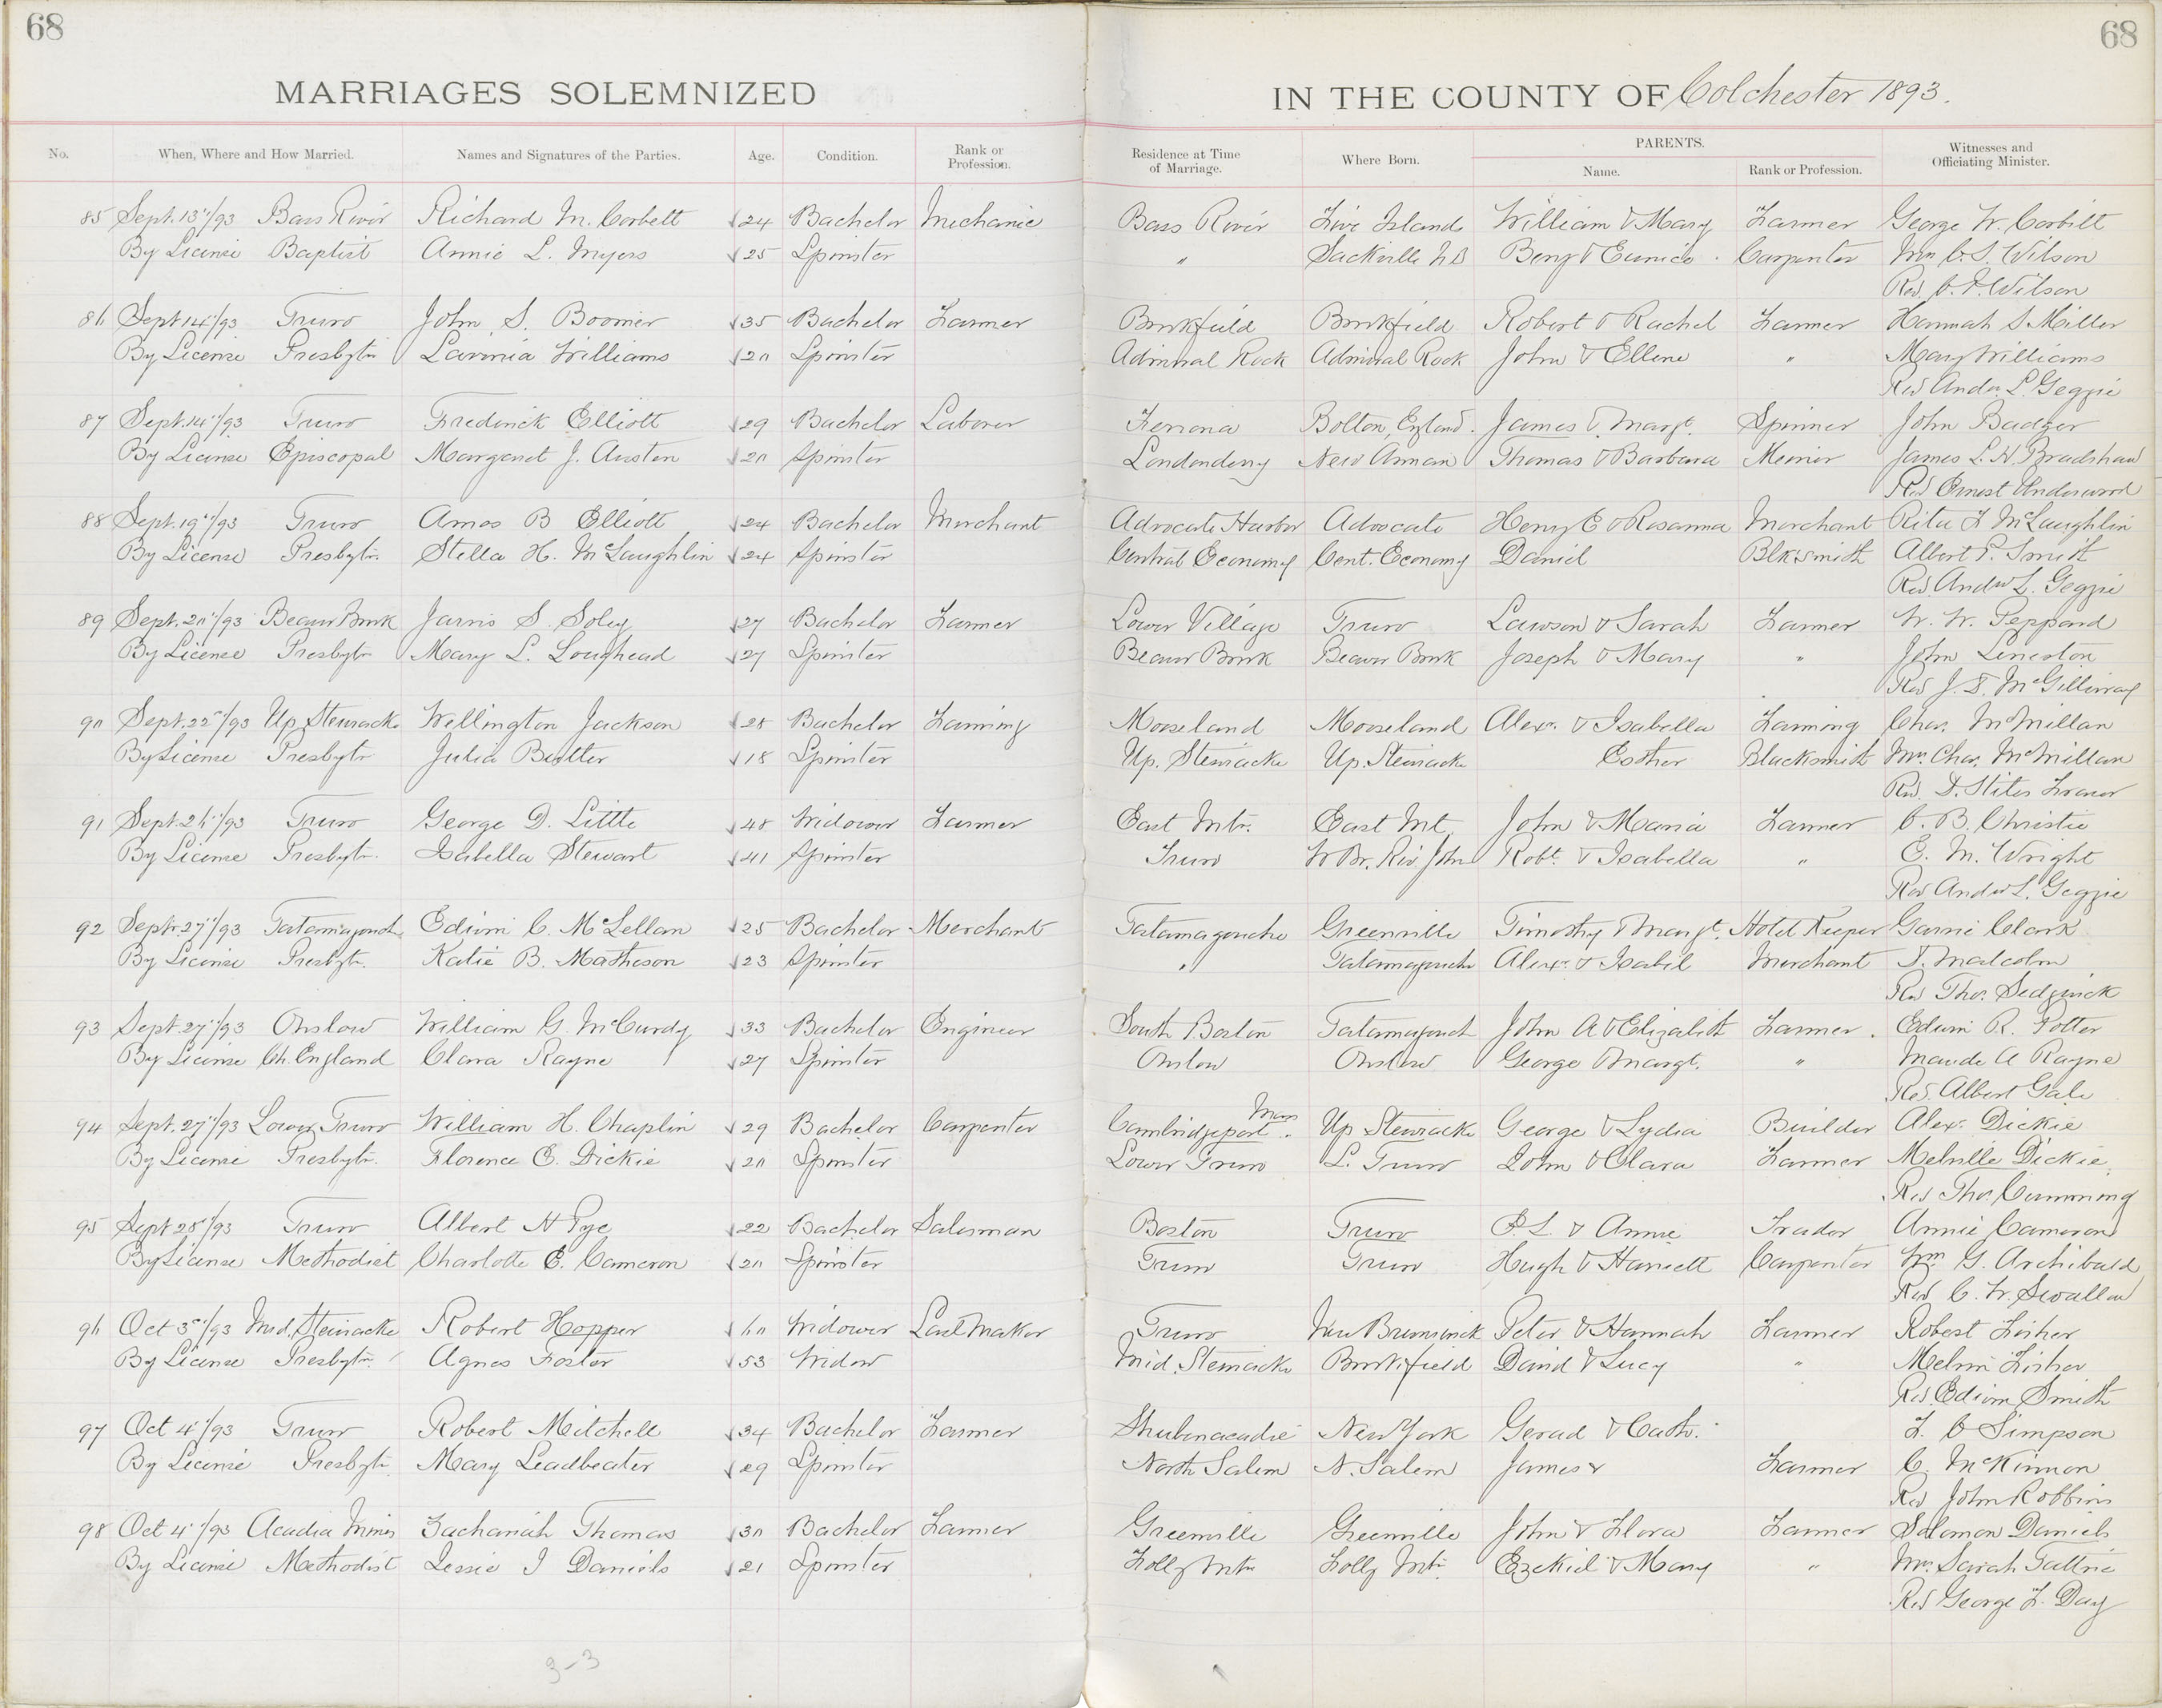 68
68
MARRIAGES SOLEMNIZED
IN THE COUNTY OF Colchester 1893.
No. When, Where and How Married. Names and Signatures of the Parties. Age. Condition. Rank or Profession. Residence at Time of Marriage. Where Born. PARENTS. Name. Rank or Profession. Witnesses and Officiating Minister.
85 Sept. 13"/93 Bass River Richard M. Corbett 24 Bachelor Mechanic Bass River Five Islands William & Mary Farmer George W. Corbett
By License Baptist Annie L. Myers 25 Spinster " Sackville NB Benj & Eunice Carpenter Mrs C. S. Wilson
Rev. Wilson
86 Sept 14"/93 Truro John S. Boomer 35 Bachelor Farmer Brookfield Brookfield Robert & Rachel Farmer Hannah S Miller
By License Presbytn Lavinia Williams 20 Spinster Admiral Rock Admiral Rock John & Ellen " Mary Williams
Rev Andw. L. Geggie
87 Sept. 14"/93 Truro Frederick Elliott 29 Bachelor Laborer Ferrona Bolton, England. James & Margt. Spinner John Badger
By License Episcopal Margaret J. Austen 20 Spinster Londonderry New Annan Thomas & Barbara Meiner James L. H. Bradshaw
Rev Ernest Underwood
88 Sept. 19"/93 Truro Amos B Elliott 24 Bachelor Merchant Advocate Harbor Advocate Henry E & Rosanna Merchant Rita F McLaughlin
By License Presbytn. Stella H. McLaughlin 24 Spinster Central Economy Cent. Economy Daniel Blksmith Albert P. Smith
Rev. Andw L. Geggie
89 Sept. 20"/93 Beaver Brook Jarvis S. Soley 27 Bachelor Farmer Lower Village Truro Lawson & Sarah Farmer W. W. Peppard
By License Presbytn Mary L. Loughead 27 Spinster Beaver Brook Beaver Brook Joseph & Mary " John
Rev J. D. McGillivray
90 Sept. 22"/93 Up. Stewiacke Wellington Jackson 28 Bachelor Farming Mooseland Mooseland Alexr. & Isabella Farming Chas. McMillan
By License Presbytn Julia Butler 18 Spinster Up. Stewiacke Up. Stewiacke Esther Blacksmith Mrs. Chas. McMillan
Rev. D. Stiles Fraser
91 Sept. 26"/93 Truro George D. Little 48 Widower Farmer East Mtn. East Mt John & Maria Farmer C. B. Christie
By License Presbytn. Isabella Stewart 41 Spinster Truro W Br. Riv. John Robt. & Isabella " E. M. Wright
Rev Andw L. Geggie
92 Sept. 27"/93 Tatamagouche Edwin C. McLellan 25 Bachelor Merchant Tatamagouche Greenville Timothy & Margt. Hotel Keeper Clark
By License Presbytn. Katie B. Matheson 23 Spinster " Tatamagouche Alexr. & Isabel Merchant T. Malcolm
Rev Thos. Sedgwick
93 Sept. 27"/93 Onslow William G. McCurdy 33 Bachelor Engineer South Boston Tatamagouch John A & Elizabeth Farmer. Edwin R. Potter
By License Ch. England Clara Rayne 27 Spinster Onslow Onslow George & Margt. " Maude A Rayne
Rev. Albert Gale
94 Sept. 27"/93 Lower Truro William H. Chaplin 29 Bachelor Carpenter Cambridgeport Mass. Up Stewiacke George & Lydia Builder Alex. Dickie
By License Presbytn. Florence E. Dickie 20 Spinster Lower Truro L. Truro John & Clara Farmer Melville Dickie
Rev Thos. Cumming
95 Sept 28"/93 Truro Albert H Pye 22 Bachelor Salesman Boston Truro P. L. & Annie Trader Annie Cameron
By License Methodist Charlotte E. Cameron 20 Spinster Truro Truro Hugh & Harriett Carpenter Wm G. Archibald
Rev C. W. Swallow
96 Oct 3"/93 Mid. Stewiacke Robert Hopper 60 Widower Last Maker Truro New Brunswick Peter & Hannah Farmer Robert Fisher
By License Presbytn. Agnes Foster 53 Widow Mid. Stewiacke Brookfield David & Lucy " Melvin Fisher
Rev. Edwin Smith
97 Oct 4"/93 Truro Robert Mitchell 34 Bachelor Farmer Shubenacadie New York Gerad & Cath. F. C Simpson
By License Presbytn. Mary Leadbeater 29 Spinster North Salem N. Salem James & Farmer C. McKinnon
Rev John Robbins
98 Oct 4"/93 Acadia Mines Zachariah Thomas 30 Bachelor Farmer Greenville Greenville John & Flora Farmer Solomon Daniels
By License Methodist Jessie I Daniels 21 Spinster Folly Mtn Folly Mtn. Ezekiel & Mary " Mrs. Sarah
Rev George F. Day
3-3